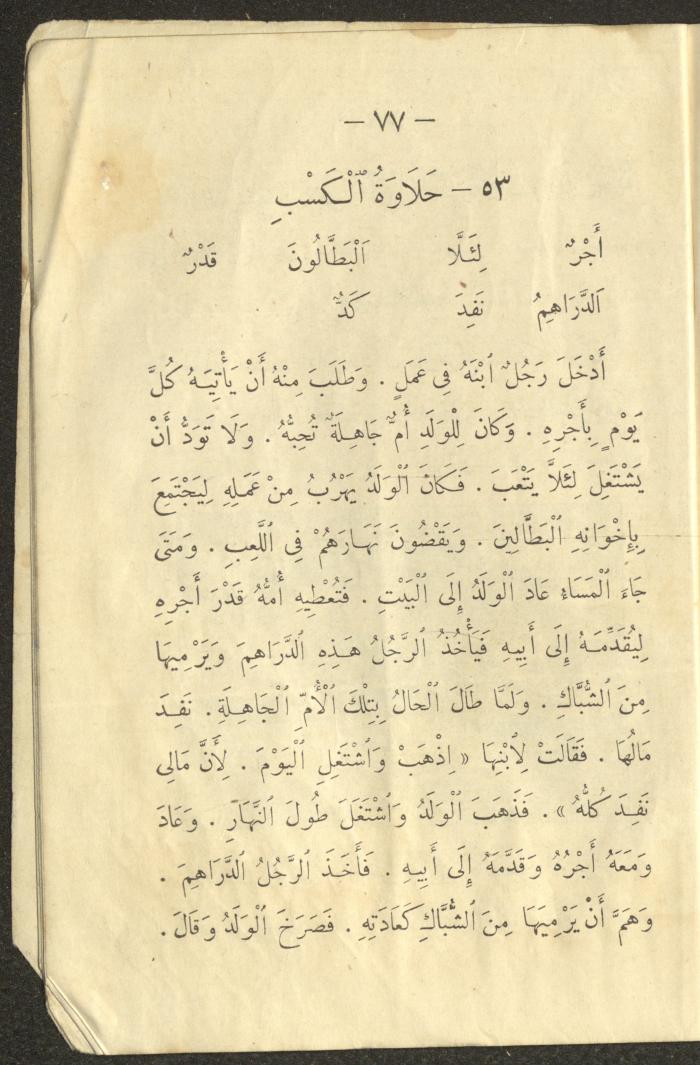 — ٧٧ —
٥٣ — حَلَاوَةُ ٱلْكَسْبِ
أَجْرٌ لِئَلَّا اَلْبَطَّالُونَ قَدْرٌ
اَلدَّرَاهِمُ نَفِدَ كَدٌّ
أَدْخَلَ رَجُلٌ ٱبْنَهُ فِى عَمَلٍ . وَطَلَبَ مِنْهُ أَنْ يَأْتِيَهُ كُلَّ
يَوْمٍ بِأَجْرِهِ . وَكَانَ لِلْوَلَدِ أُمٌّ جَاهِلَةٌ تُحِبُّهُ . وَلَا تَوَدُّ أَنْ
يَشْتَغِلَ لِئَلاَّ يَتْعَبَ . فَكَانَ ٱلْوَلَدُ يَهْرُبُ مِنْ عَمَلِهِ لِيَجْتَمِعَ
بِإِخْوَانِهِ ٱلْبَطَّالِينَ . وَيَقْضُونَ نَهَارَهُمْ فِى ٱللَّعِبِ . وَمَتَى
جَاءَ ٱلْمَسَاءُ عَادَ ٱلْوَلَدُ إِلَى ٱلْبَيْتِ . فَتُعْطِيهِ أُمُّهُ قَدْرَ أَجْرِهِ
لِيُقَدِّمَهُ إِلَى أَبِيهِ فَيَأْخُذُ ٱلرَّجُلُ هَذِهِ ٱلدَّرَاهِمَ وَيَرْمِيهَا
مِنَ ٱلشُّبَّاكِ . وَلَمَّا طَالَ ٱلْحَالُ بِتِلْكَ ٱلْأُمِّ ٱلْجَاهِلَةِ . نَفِدَ
مَالُهَا . فَقَالَتْ لِٱبْنِهَا « اِذْهَبْ وَٱشْتَغِلِ ٱلْيَوْمَ . لِأَنَّ مَالِى
نَفِدَ كُلُّهُ » . فَذَهَبَ ٱلْوَلَدُ وَٱشْتَغَلَ طُولَ ٱلنَّهَارِ . وَعَادَ
وَمَعَهُ أَجْرُهُ وَقَدَّمَهُ إِلَى أَبِيهِ . فَأَخَذَ ٱلرَّجُلُ ٱلدَّرَاهِمَ .
وَهَمَّ أَنْ يَرْمِيَهَا مِنَ ٱلشُّبَّاكِ كَعَادَتِهِ . فَصَرَخَ ٱلْوَلَدُ وَقَالَ .